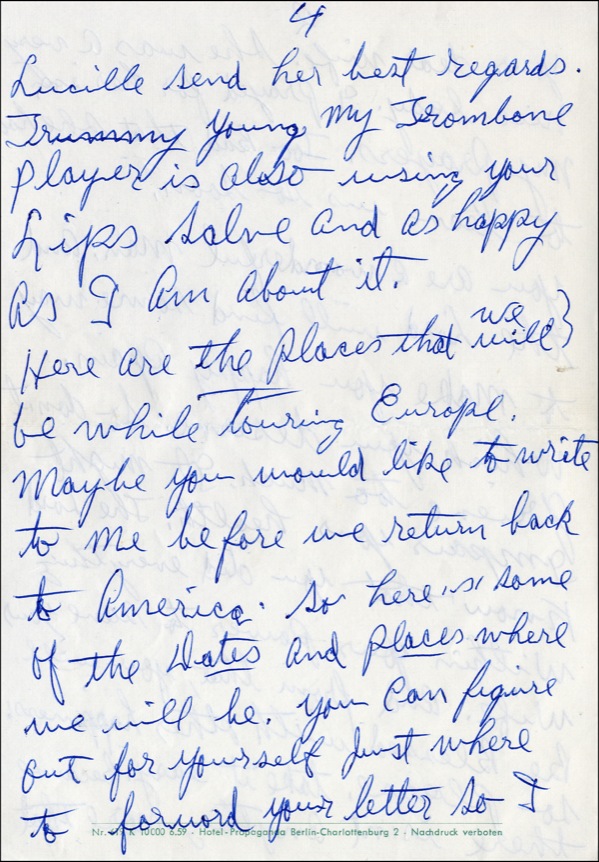 4
Lucille send her best regards.
Trummy Young my Trombone
Player is also using your
Lips Salve and as happy
as I am about it.
Here are the places that we will}
be while touring Europe.
Maybe you would like to write
to me before we return back
to America. So here 'is' some
of the Dates and places where
we will be. You can figure
out for yourself just where
to forward your letter so I
Nr. K 10000 6.59 · Hotel-Propaganda Berlin-Charlottenburg 2 · Nachdruck verboten